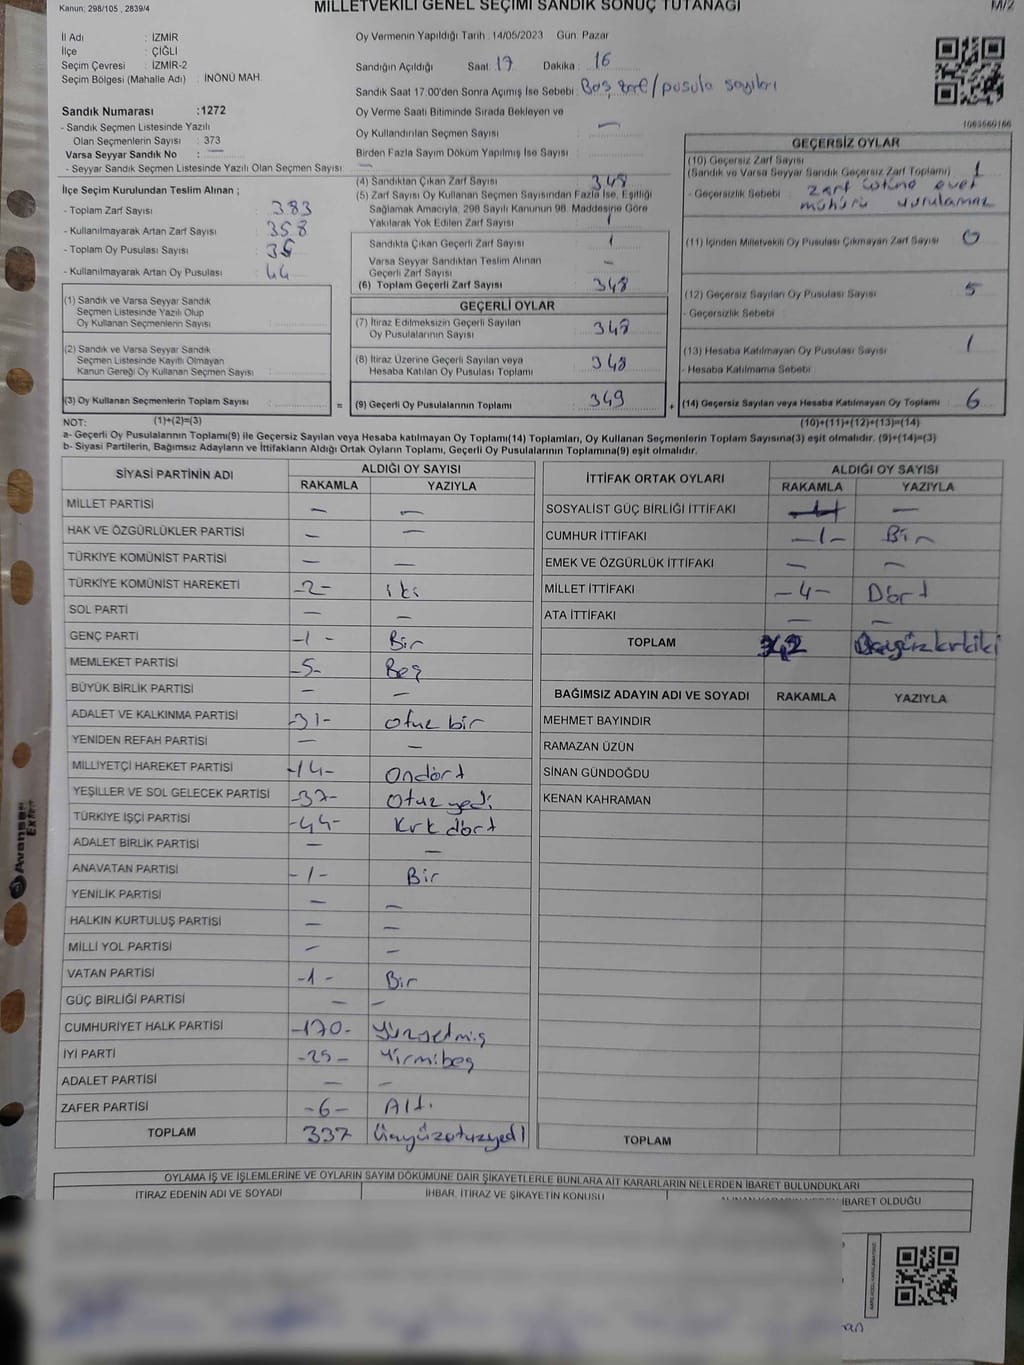 Kanun; 298/105 , 2839/4
MİLLETVEKİLİ GENEL SEÇİMİ SANDIK SONUÇ TUTANAĞI
M/2
İl Adı : İZMİR
İlçe : ÇİĞLİ
Seçim Çevresi : İZMİR-2
Seçim Bölgesi (Mahalle Adı) : İNÖNÜ MAH.
Oy Vermenin Yapıldığı Tarih :14/05/2023 Gün: Pazar
Sandığın Açıldığı Saat: 17 Dakika : 16
Sandık Saat 17.00'den Sonra Açımış İse Sebebi: Boş zarf/pusula sayıları
Sandık Numarası :1272
- Sandık Seçmen Listesinde Yazılı
Olan Seçmenlerin Sayısı : 373
Varsa Seyyar Sandık No : —
- Seyyar Sandık Seçmen Listesinde Yazılı Olan Seçmen Sayısı: —
Oy Verme Saati Bitiminde Sırada Bekleyen ve
Oy Kullandırılan Seçmen Sayısı : —
Birden Fazla Sayım Döküm Yapılmış İse Sayısı :
1063660166
İlçe Seçim Kurulundan Teslim Alınan ;
- Toplam Zarf Sayısı : 383
- Kullanılmayarak Artan Zarf Sayısı : 358
- Toplam Oy Pusulası Sayısı :
- Kullanılmayarak Artan Oy Pusulası : 44
(1) Sandık ve Varsa Seyyar Sandık
Seçmen Listesinde Yazılı Olup
Oy Kullanan Seçmenlerin Sayısı :
(2) Sandık ve Varsa Seyyar Sandık
Seçmen Listesinde Kayıtlı Olmayan
Kanun Gereği Oy Kullanan Seçmen Sayısı :
(3) Oy Kullanan Seçmenlerin Toplam Sayısı :
(4) Sandıktan Çıkan Zarf Sayısı : 348
(5) Zarf Sayısı Oy Kullanan Seçmen Sayısından Fazla İse, Eşitliği
Sağlamak Amacıyla, 298 Sayılı Kanunun 98. Maddesine Göre
Yakılarak Yok Edilen Zarf Sayısı : 1
Sandıkta Çıkan Geçerli Zarf Sayısı : 1
Varsa Seyyar Sandıktan Teslim Alınan
Geçerli Zarf Sayısı : —
(6) Toplam Geçerli Zarf Sayısı : 348
GEÇERLİ OYLAR
(7) İtiraz Edilmeksizin Geçerli Sayılan
Oy Pusulalarının Sayısı : 348
(8) İtiraz Üzerine Geçerli Sayılan veya
Hesaba Katılan Oy Pusulası Toplamı : 348
= (9) Geçerli Oy Pusulalarının Toplamı : 349
GEÇERSİZ OYLAR
(10) Geçersiz Zarf Sayısı
(Sandık ve Varsa Seyyar Sandık Geçersiz Zarf Toplamı) : 1
- Geçersizlik Sebebi : zarf üstüne evet
mührü vurulamaz
(11) İçinden Milletvekili Oy Pusulası Çıkmayan Zarf Sayısı : 0
(12) Geçersiz Sayılan Oy Pusulası Sayısı : 5
- Geçersizlik Sebebi :
(13) Hesaba Katılmayan Oy Pusulası Sayısı : 1
- Hesaba Katılmama Sebebi :
+ (14) Geçersiz Sayılan veya Hesaba Katılmayan Oy Toplamı : 6
NOT: (1)+(2)=(3) (10)+(11)+(12)+(13)=(14)
a- Geçerli Oy Pusulalarının Toplamı(9) ile Geçersiz Sayılan veya Hesaba katılmayan Oy Toplamı(14) Toplamları, Oy Kullanan Seçmenlerin Toplam Sayısına(3) eşit olmalıdır. (9)+(14)=(3)
b- Siyasi Partilerin, Bağımsız Adayların ve İttifakların Aldığı Ortak Oyların Toplamı, Geçerli Oy Pusulalarının Toplamına(9) eşit olmalıdır.
SİYASİ PARTİNİN ADI ALDIĞI OY SAYISI
RAKAMLA YAZIYLA
MİLLET PARTİSİ — —
HAK VE ÖZGÜRLÜKLER PARTİSİ — —
TÜRKİYE KOMÜNİST PARTİSİ — —
TÜRKİYE KOMÜNİST HAREKETİ -2- iki
SOL PARTİ — —
GENÇ PARTİ -1- Bir
MEMLEKET PARTİSİ -5- Beş
BÜYÜK BİRLİK PARTİSİ — —
ADALET VE KALKINMA PARTİSİ -31- otuz bir
YENİDEN REFAH PARTİSİ — —
MİLLİYETÇİ HAREKET PARTİSİ -14- Ondört
YEŞİLLER VE SOL GELECEK PARTİSİ -37- Otuz yedi
TÜRKİYE İŞÇİ PARTİSİ -44- Kırk dört
ADALET BİRLİK PARTİSİ — —
ANAVATAN PARTİSİ -1- Bir
YENİLİK PARTİSİ — —
HALKIN KURTULUŞ PARTİSİ — —
MİLLİ YOL PARTİSİ — —
VATAN PARTİSİ -1- Bir
GÜÇ BİRLİĞİ PARTİSİ — —
CUMHURİYET HALK PARTİSİ -170- Yüzyetmiş
İYİ PARTİ -25- Yirmibeş
ADALET PARTİSİ — —
ZAFER PARTİSİ -6- Altı
TOPLAM 337 Üçyüzotuzyedi
İTTİFAK ORTAK OYLARI ALDIĞI OY SAYISI
RAKAMLA YAZIYLA
SOSYALİST GÜÇ BİRLİĞİ İTTİFAKI —
CUMHUR İTTİFAKI -1- Bir
EMEK VE ÖZGÜRLÜK İTTİFAKI — —
MİLLET İTTİFAKI -4- Dört
ATA İTTİFAKI — —
TOPLAM 342 Üçyüzkırkiki
BAĞIMSIZ ADAYIN ADI VE SOYADI RAKAMLA YAZIYLA
MEHMET BAYINDIR
RAMAZAN ÜZÜN
SİNAN GÜNDOĞDU
KENAN KAHRAMAN
TOPLAM
OYLAMA İŞ VE İŞLEMLERİNE VE OYLARIN SAYIM DÖKÜMÜNE DAİR ŞİKAYETLERLE BUNLARA AİT KARARLARIN NELERDEN İBARET BULUNDUKLARI
İTİRAZ EDENİN ADI VE SOYADI İHBAR, İTİRAZ VE ŞİKAYETİN KONUSU İBARET OLDUĞU
Avansas
Extra